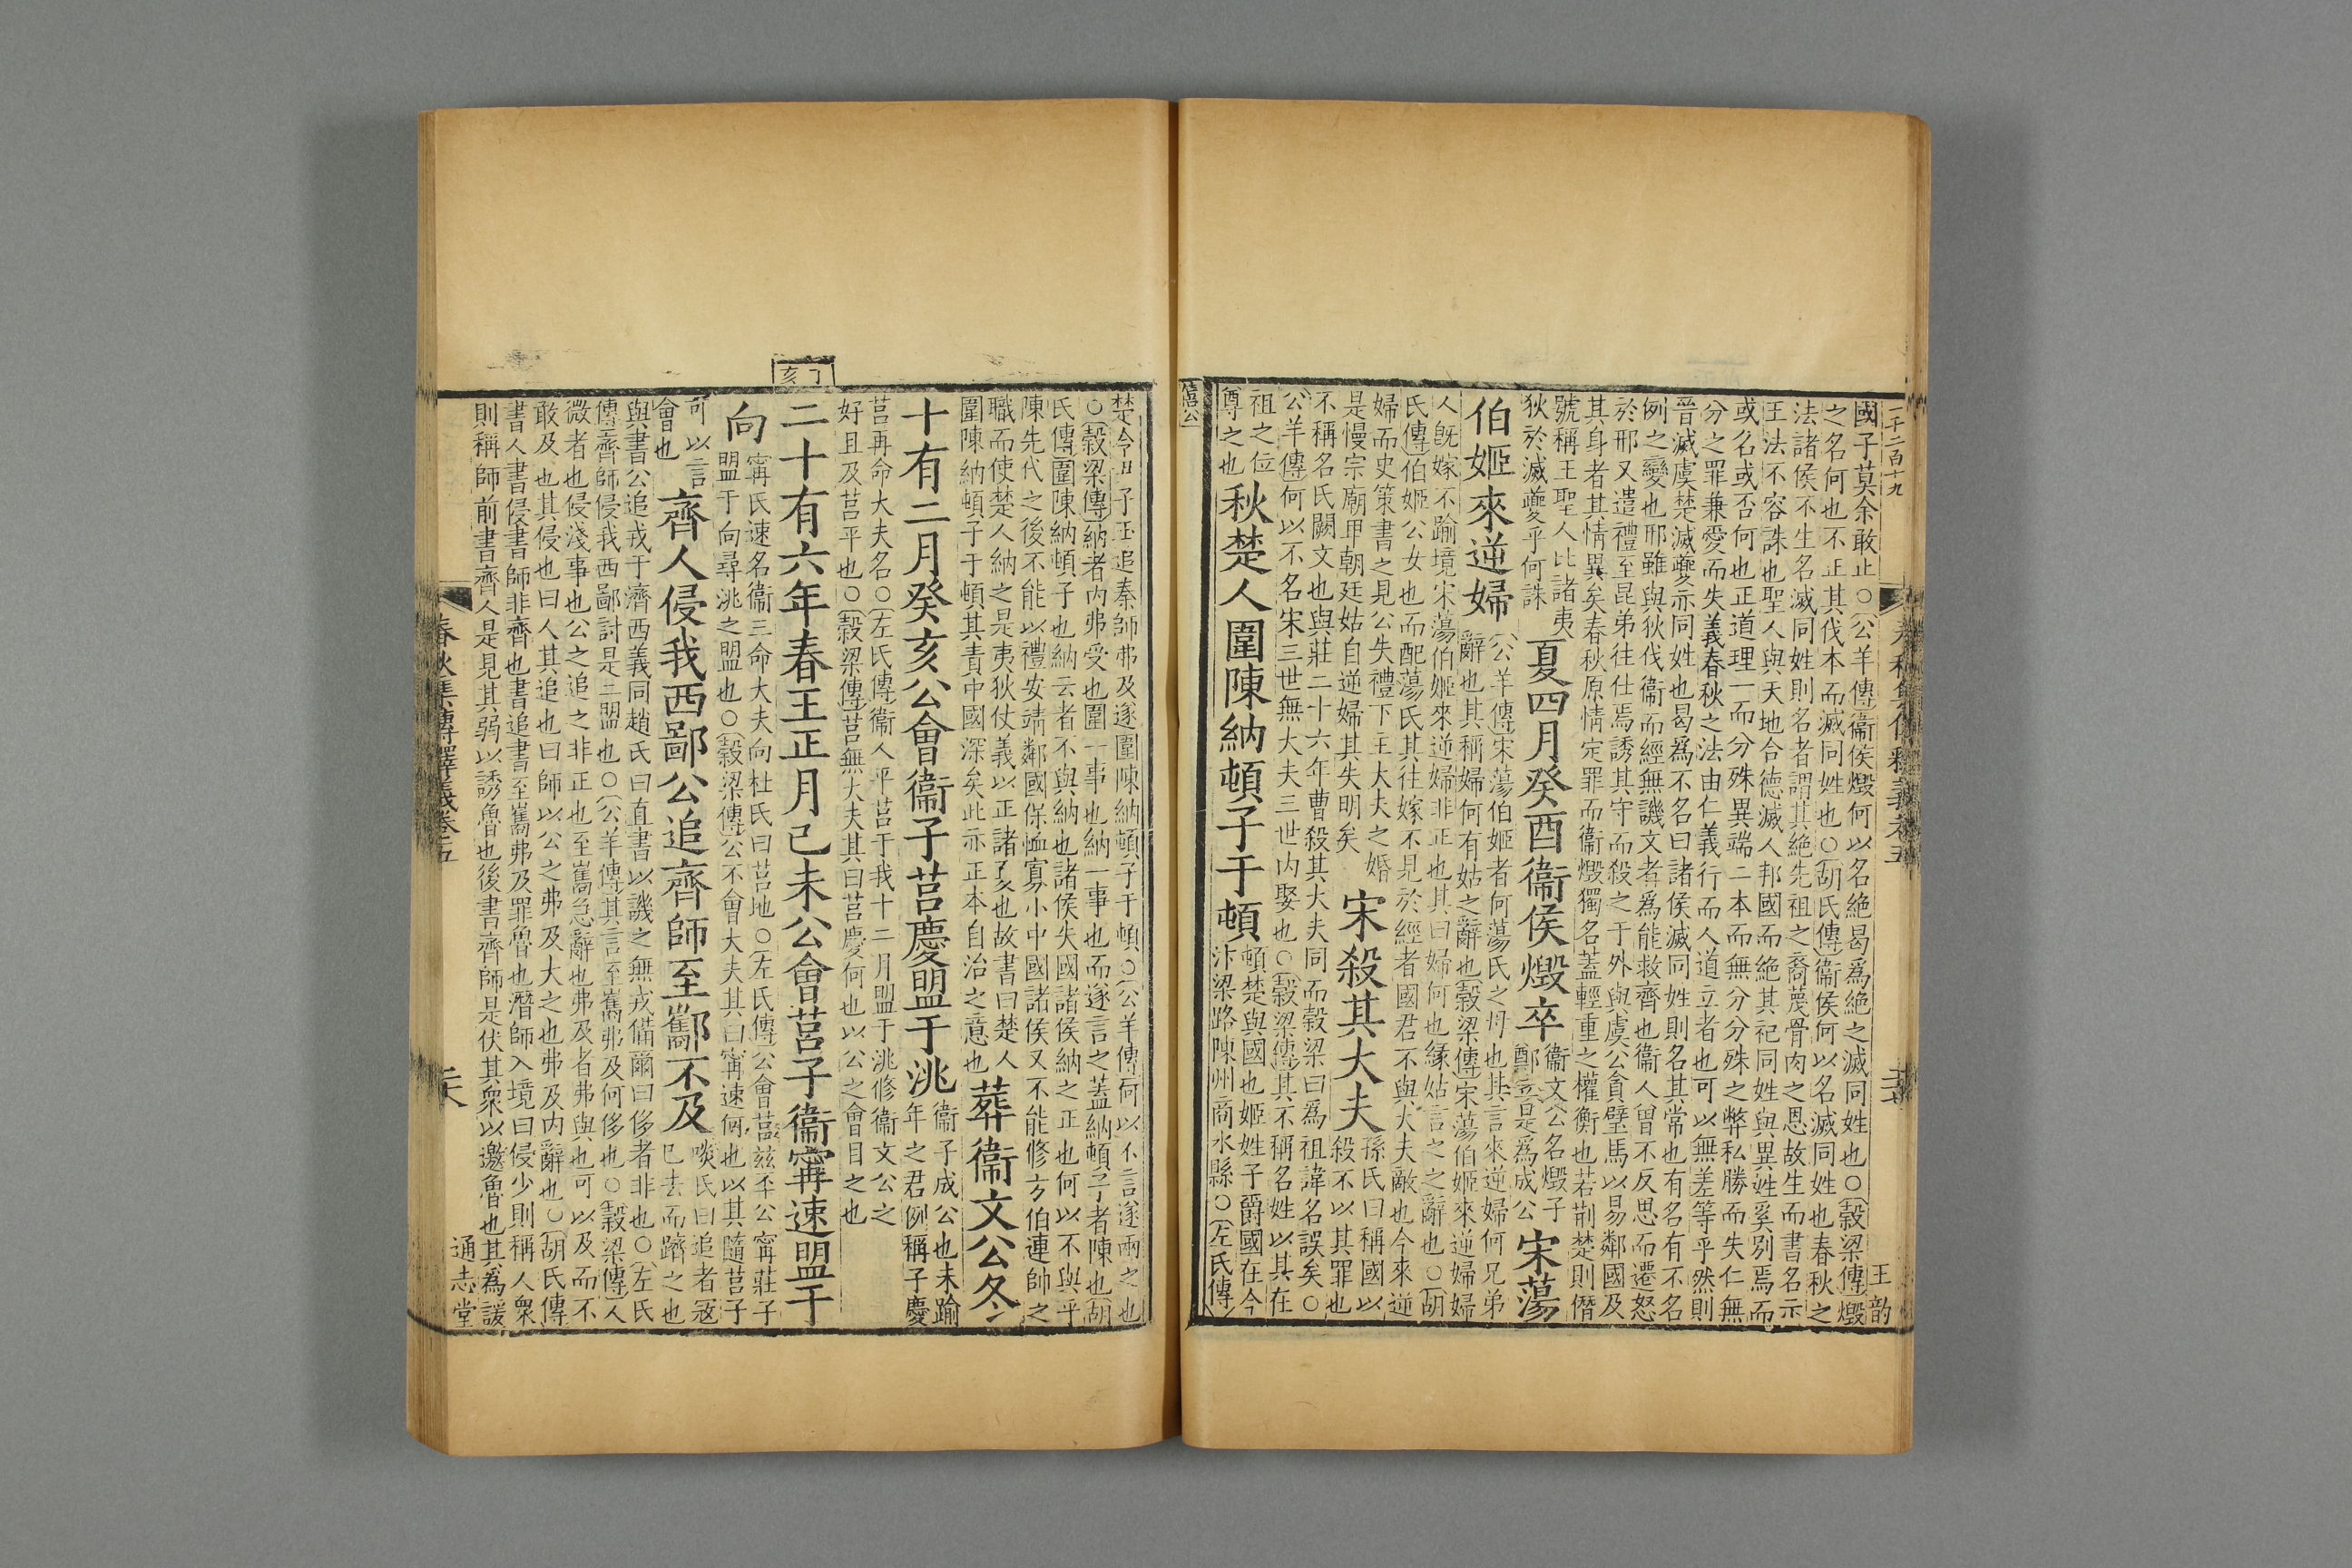 一千二百十九
國子莫余敢止○公羊傳衞侯燬何以名絶曷爲絶之滅同姓也○穀梁傳燬
之名何也不正其伐本而滅同姓也○胡氏傳衞侯何以名滅同姓也春秋之
法諸侯不生名滅同姓則名者謂其絶先祖之裔蔑骨肉之恩故生而書名示
王法不容誅也聖人與天地合德滅人邦國而絶其祀同姓與異姓奚别焉而
或名或否何也正道理一而分殊異端二本而無分分殊之弊私勝而失仁無
分之罪兼愛而失義春秋之法由仁義行而人道立者也可以無差等乎然則
晉滅虞楚滅夔亦同姓也曷爲不名曰諸侯滅同姓則名其常也有名有不名
例之變也邢雖與狄伐衞而經無譏文者爲能救齊也衞人曾不反思而遷怒
於邢又遣禮至昆弟往仕焉誘其守而殺之于外與虞公貪璧馬以易鄰國及
其身者其情異矣春秋原情定罪而衞燬獨名蓋輕重之權衡也若荆楚則僭
號稱王聖人比諸夷
狄於滅夔乎何誅
夏四月癸酉衞侯燬卒
衞文公名燬子
鄭立是爲成公
宋蕩
伯姬來逆婦
公羊傳宋蕩伯姬者何蕩氏之母也其言來逆婦何兄弟
辭也其稱婦何有姑之辭也穀梁傳宋蕩伯姬來逆婦婦
人既嫁不踰境宋蕩伯姬來逆婦非正也其曰婦何也緣姑言之之辭也○胡
氏傳伯姬公女也而配蕩氏其往嫁不見於經者國君不與大夫敵也今來逆
婦而史策書之見公失禮下主大夫之婚
是慢宗廟甲朝廷姑自逆婦其失明矣
宋殺其大夫
孫氏曰稱國以
殺不以其罪也
不稱名氏闕文也與莊二十六年曹殺其大夫同而穀梁曰爲祖諱名誤矣○
公羊傳何以不名宋三世無大夫三世内娶也○穀梁傳其不稱名姓以其在
祖之位
尊之也
秋楚人圍陳納頓子于頓
頓楚與國也姬姓子爵國在今
汴梁路陳州商水縣○左氏傳
王韵
僖公
楚令尹子玉追秦師弗及遂圍陳納頓子于頓○公羊傳何以不言遂兩之也
○穀梁傳納者内弗受也圍一事也納一事也而遂言之蓋納頓子者陳也胡
氏傳圍陳納頓子也納云者不與納也諸侯失國諸侯納之正也何以不與乎
陳先代之後不能以禮安靖鄰國保恤寡小中國諸侯又不能修方伯連帥之
職而使楚人納之是夷狄仗義以正諸夏也故書曰楚人
圍陳納頓子于頓其責中國深矣此亦正本自治之意也
葬衞文公冬
十有二月癸亥公會衞子莒慶盟于洮
衞子成公也未踰
年之君例稱子慶
莒再命大夫名○左氏傳衞人平莒于我十二月盟于洮修衞文公之
好且及莒平也○穀梁傳莒無大夫其曰莒慶何也以公之會目之也
丁亥
二十有六年春王正月己未公會莒子衞甯速盟于
向
甯氏速名衞三命大夫向杜氏曰莒地○左氏傳公會莒兹丕公甯莊子
盟于向尋洮之盟也○穀梁傳公不會大夫其曰甯速何也以其隨莒子
可以言
會也
齊人侵我西鄙公追齊師至酅不及
啖氏曰追者寇
已去而躋之也
與書公追戎于濟西義同趙氏曰直書以譏之無戎備爾曰侈者非也○左氏
傳齊師侵我西鄙討是二盟也○公羊傳其言至巂弗及何侈也○穀梁傳人
微者也侵淺事也公之追之非正也至巂急辭也弗及者弗與也可以及而不
敢及也其侵也曰人其追也曰師以公之弗及大之也弗及内辭也○胡氏傳
書人書侵書師非齊也書追書至巂弗及罪魯也潛師入境曰侵少則稱人衆
則稱師前書齊人是見其弱以誘魯也後書齊師是伏其衆以邀魯也其爲諼
春秋集傳釋義卷五
通志堂